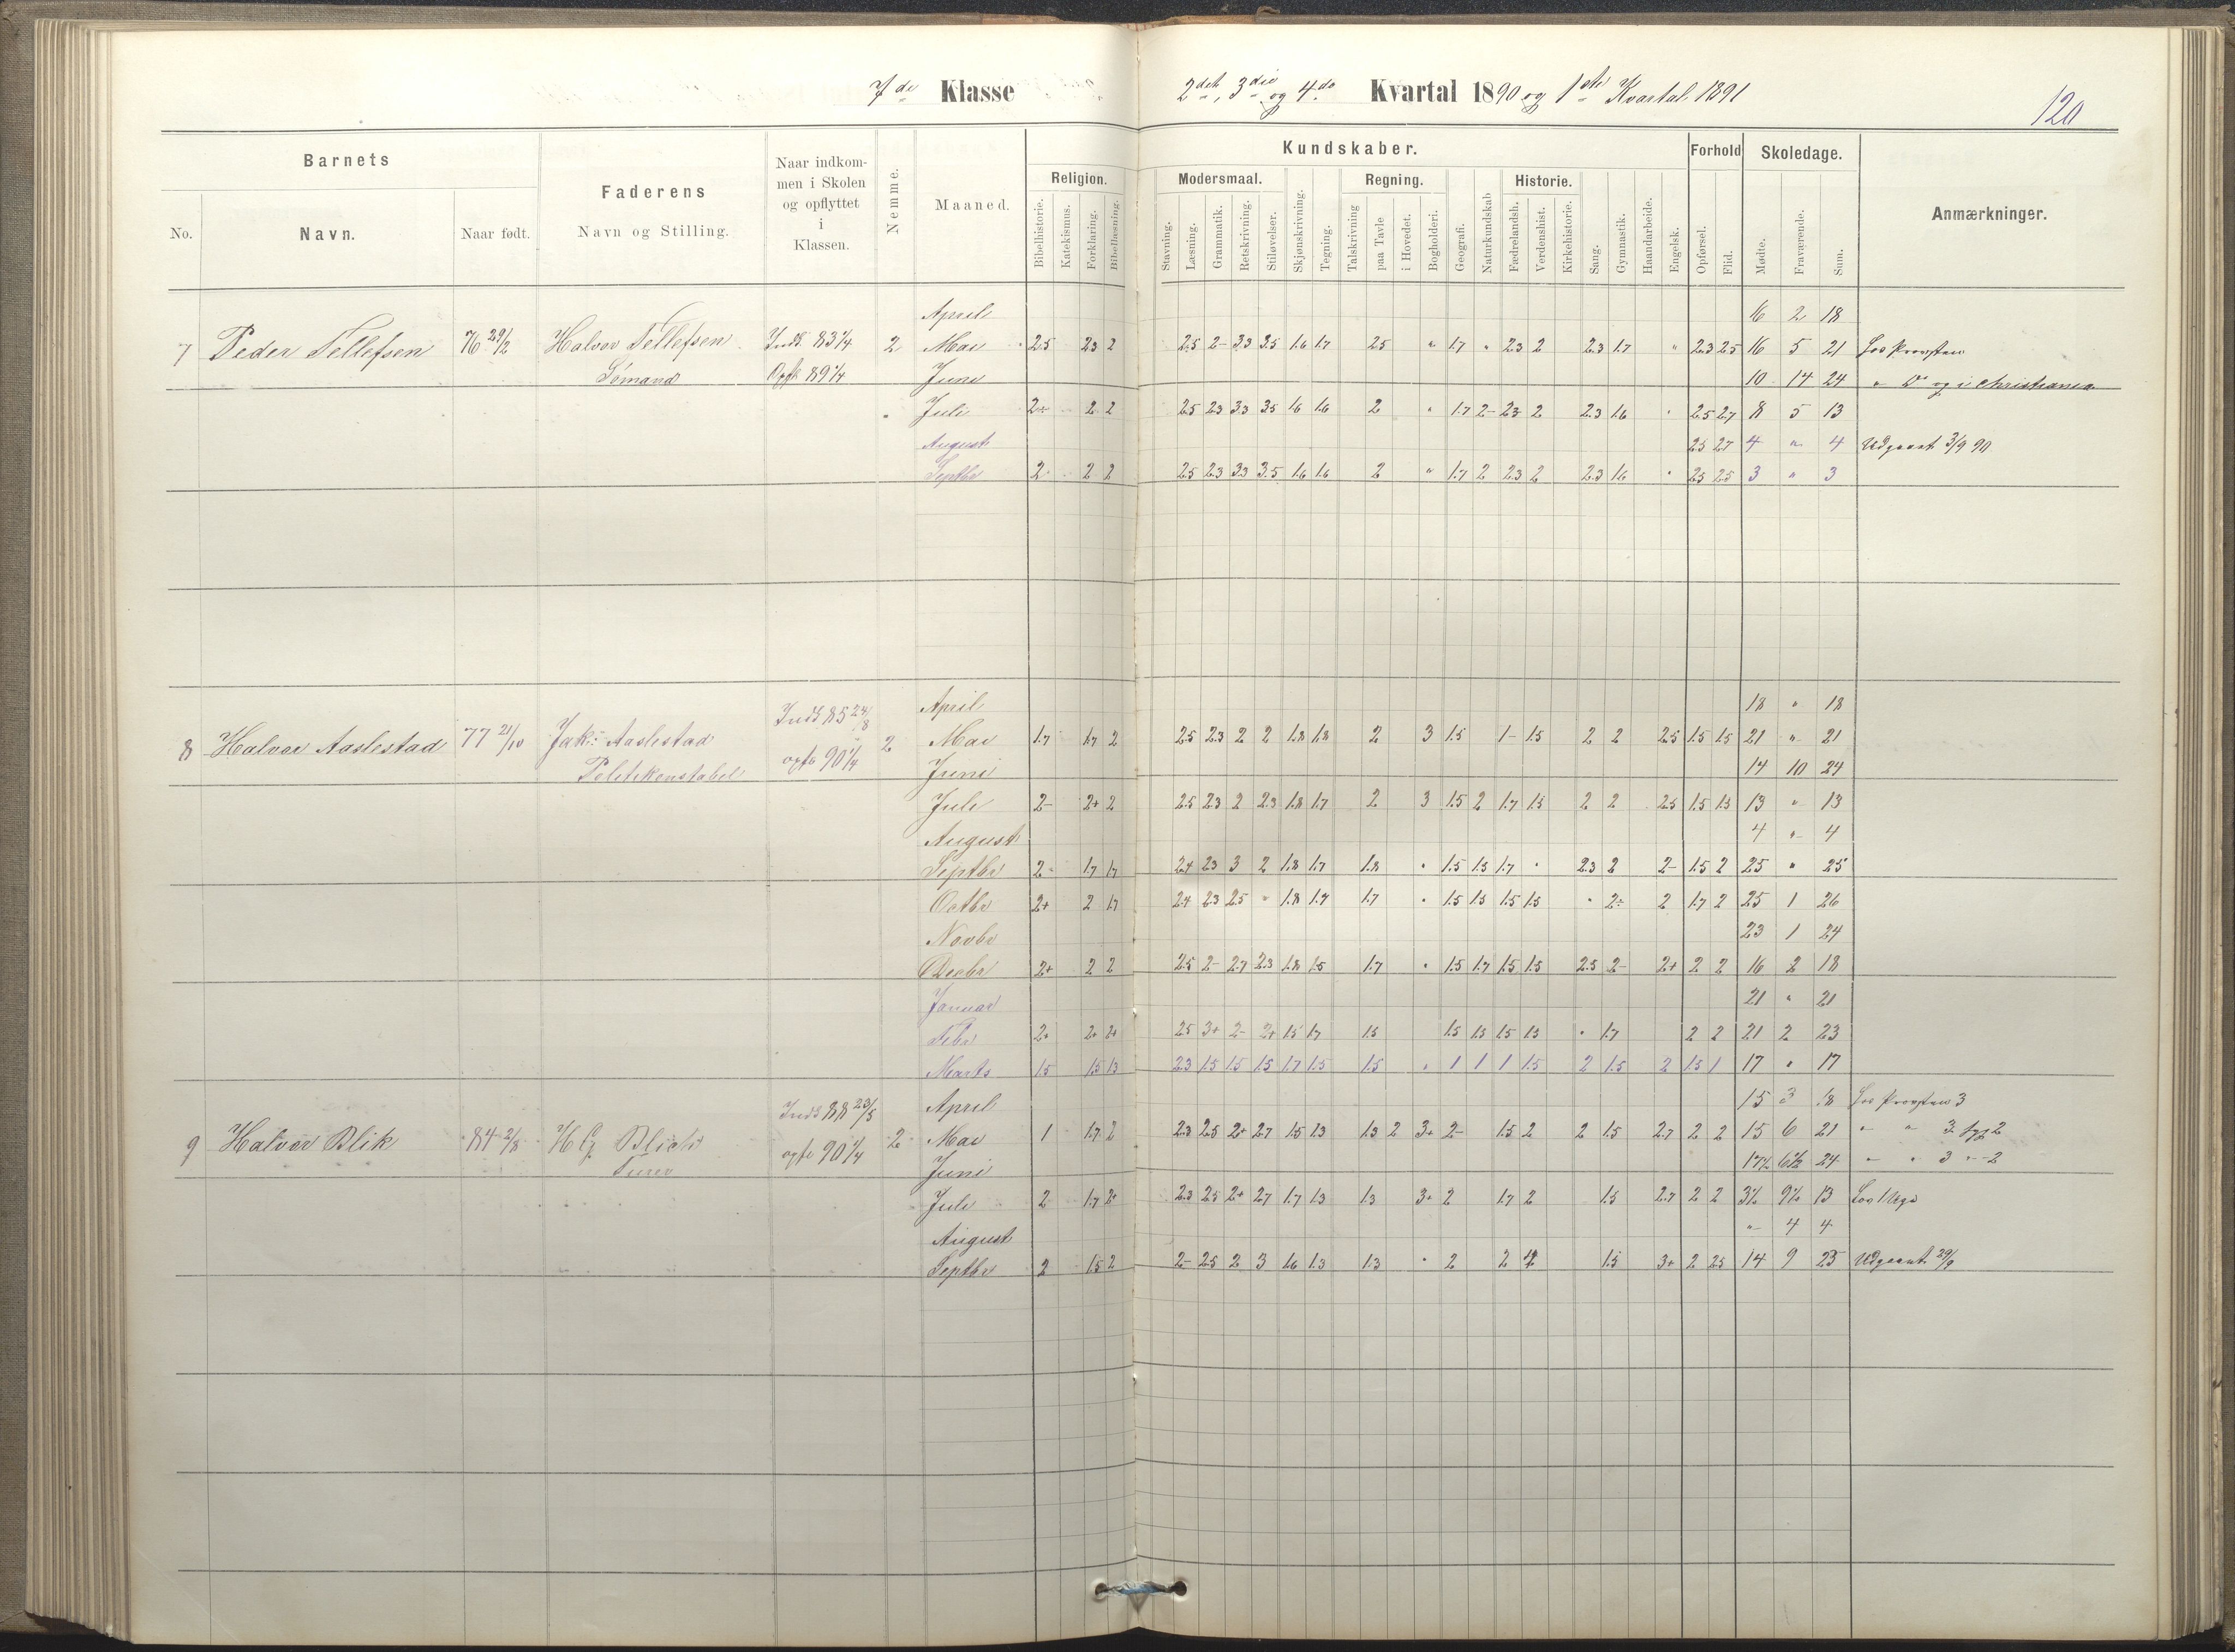 7de Klasse 2det, 3die og 4de Kvartal 1890 og 1ste Kvartal 1891
120
Barnets
No. Navn. Naar født.
Faderens
Navn og Stilling.
Naar indkom-
men i Skolen
og opflyttet
i
Klassen.
Nemme.
Maaned.
Kundskaber.
Religion.
Bibelhistorie. Katekismus. Forklaring. Bibellæsning.
Modersmaal.
Stavning. Læsning. Grammatik. Retskrivning. Stiløvelser. Skjønskrivning. Tegning.
Regning.
Talskrivning paa Tavle i Hovedet. Bogholderi. Geografi. Naturkundskab
Historie.
Fædrelandsh. Verdenshist. Kirkehistorie. Sang. Gymnastik. Haandarbeide. Engelsk.
Forhold
Opførsel. Flid.
Skoledage.
Mødte. Fraværende. Sum.
Anmærkninger.
April 16 2 18
7 Peder Tellefsen 76 29/2 Halvor Tellefsen Inds 83 1/4 2 Mai 2.5 2.3 2 2.5 2- 3.3 3.5 1.6 1.7 2.5 " 1.7 " 2.3 2 2.3 1.7 " 2.3 2.5 16 5 21
Sømand 89 1/4 Juni 10 14 24 " og i Christiania
Juli 2- 2 2 2.5 2.3 3.3 3.5 1.6 1.6 2 " 1.7 2- 2.3 2 2.3 1.6 " 2.5 2.7 8 5 13
August 2.5 2.7 4 " 4 Udgaat 3/9 90
Septbr 2 2 2 2.5 2.3 3.3 3.5 1.6 1.6 2 " 1.7 2 2.3 2 2.3 1.6 " 2.5 2.5 3 " 3
Inds 85 24/8 April 18 " 18
8 Halvor Aaslestad 77 21/10 Jak: Aaslestad opfl 90 1/4 2 Mai 1.7 1.7 2 2.5 2.3 2 2 1.8 1.8 2 3 1.5 1- 1.5 2 2 2.5 1.5 1.5 21 " 21
Politikonstabel Juni 14 10 24
Juli 2- 2+ 2 2.5 2.3 2 2.3 1.8 1.7 2 3 1.5 2 1.7 1.5 2 2 2.5 1.5 1.5 13 " 13
August 4 " 4
Septbr 2- 1.7 1.7 2.4 2.3 3 2 1.8 1.7 1.8 " 1.5 1.5 1.7 " 2.3 2 2- 1.5 2 25 " 25
Octbr 2+ 2 1.7 2.4 2.3 2.5 " 1.8 1.7 1.7 " 1.5 1.5 1.5 1.5 " 2- 2 1.7 2 25 1 26
Novbr 23 1 24
Decbr 2+ 2 2 2.5 2- 2.7 2.3 1.8 1.5 1.7 " 1.5 1.7 1.5 1.5 2.5 2- 2+ 2 2 16 2 18
Januar 21 " 21
Febr 2+ 2+ 2+ 2.5 3+ 2- 2+ 1.5 1.7 1.5 1.5 1.5 1.5 1.5 " 1.7 2 2 21 2 23
Marts 1.5 1.5 1.3 2.3 1.5 1.5 1.5 1.7 1.5 1.5 " 1 1 1 1.5 2 1.5 2 1.5 1 17 " 17
Inds 88 23/5 April 15 3 18
9 Halvor Blik 84 2/8 H G Blich opfl 90 1/4 2 Mai 1 1.7 2 2.3 2.5 2+ 2.7 1.5 1.3 1.3 2 3+ 2- 1.5 2 2 1.5 2.7 2 2 15 6 21
Juni 17½ 6½ 24 " " 3 " 2
Juli 2 1.7 2+ 2.3 2.5 2+ 2.7 1.7 1.3 1.3 3+ 2 1.7 2 1.5 2.7 2 2 3½ 9½ 13
August " 4 4
Septbr 2 1.5 2 2- 2.5 2 3 1.6 1.3 1.3 " 2 2 2 1.5 3+ 2 2.5 14 9 23 Udgaat 29/9